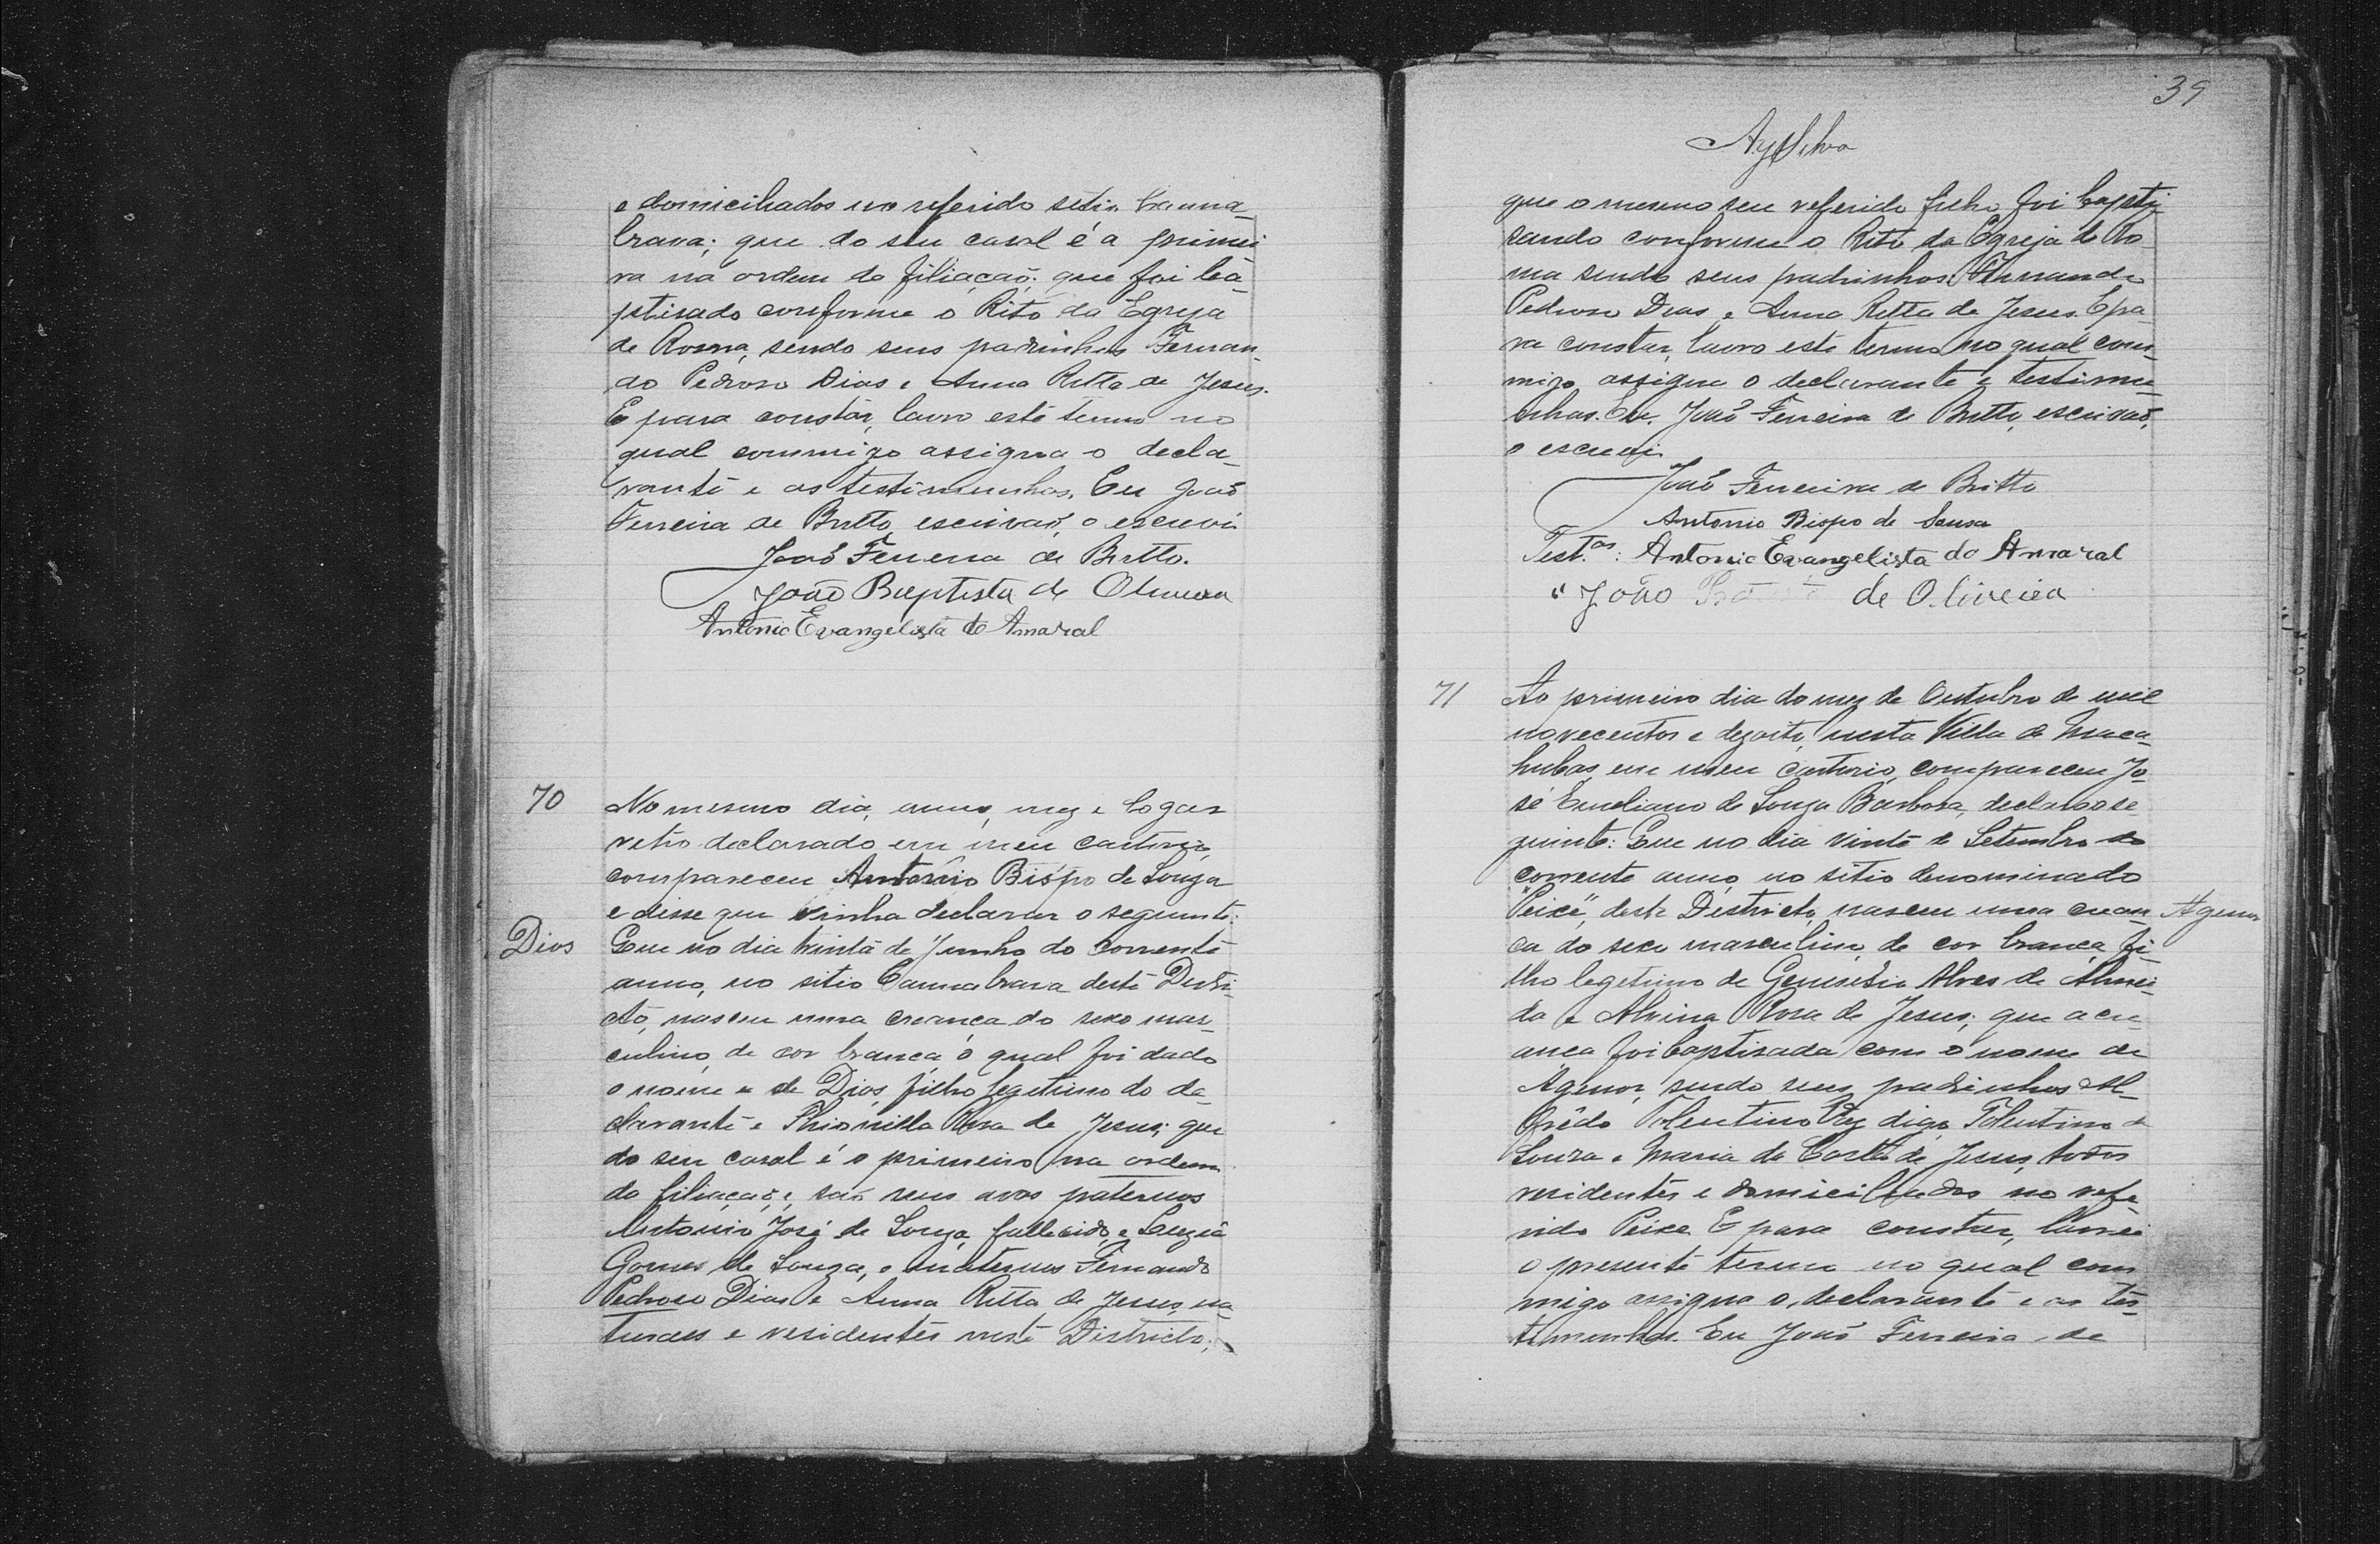 e domiciliados no referido sitio Canna
brava; que do seu casal é a primei
ra na ordem do filiação; que foi ba
ptisado conforme o Rito da Egreja
de Roma, sendo seus padrinhos Fernan
do Pedroso Dias e Anna Ritta de Jesus.
E para constar, lavro este termo no
qual commigo assigna o decla
rante e as testimunhas. Eu João
Ferreira de Britto, escrivão, o escrevi
João Ferreira de Britto.
João Baptista de Oliveira
Antonio Evangelista do Amaral
70 No mesmo dia, anno, mez e logar
retro declarado em meu cartorio,
compareceu Antonio Bispo de Souza
e disse que vinha declarar o seguinte:
Dios Que no dia trinta de Junho do corrente
anno, no sitio Cannabrava deste Distri
cto, nasceu uma creança do sexo mas
culino, de cor branca o qual foi dado
o nome de Dios, filho legitimo do de
clarante e Rosa de Jesus; que
do seu casal é o primeiro na ordem
do filiação; e são seus avos paternos
Antonio José de Souza, fallecido, e Luzia
Gomes de Souza, e maternos Fernando
Pedroso Dias e Anna Ritta de Jesus, na
turaes e residentes neste Districto;
39
que o mesmo seu referido filho foi bapti
sando conforme o Rito da Egreja de Ro
ma sendo seus padrinhos Fernando
Pedroso Dias e Anna Ritta de Jesus. E pa
ra constar, lavro este termo no qual com
migo assigna o declarante e testimu
nhas. Eu, João Ferreira de Britto, escrivão,
o escrevi
João Ferreira de Britto
Antonio Bispo de Sousa
Test.as: Antonio Evangelista do Amaral
" João de Oliveira
71 Ao primeiro dia do mez de Outubro de mil
novecentos e dezoito, nesta Villa de Maca
hubas, em meu cartorio, compareceu Jo
sé Emeliano de Souza Barbosa, declarou o se
guinte: Que no dia vinte de Setembro do
corrente anno, no sitio denominado
"Peixe", deste Districto, nasceu uma crean
Agenor
ça do sexo masculino, de cor branca, fi
lho legetimo de Alves de Almei
da e Alvina Rosa de Jesus; que a cre
ança foi baptisada com o nome de
Agenor, sendo seus padrinhos Al
frêdo Tolentino digo, Tolentino de
Souza e Maria da Costa de Jesus, todos
residentes e domiciliados no refe
rido Peixe. E para constar, lavrei
o presente termo no qual com
migo assigna o declarante e as tes
timunhas. Eu João Ferreira de